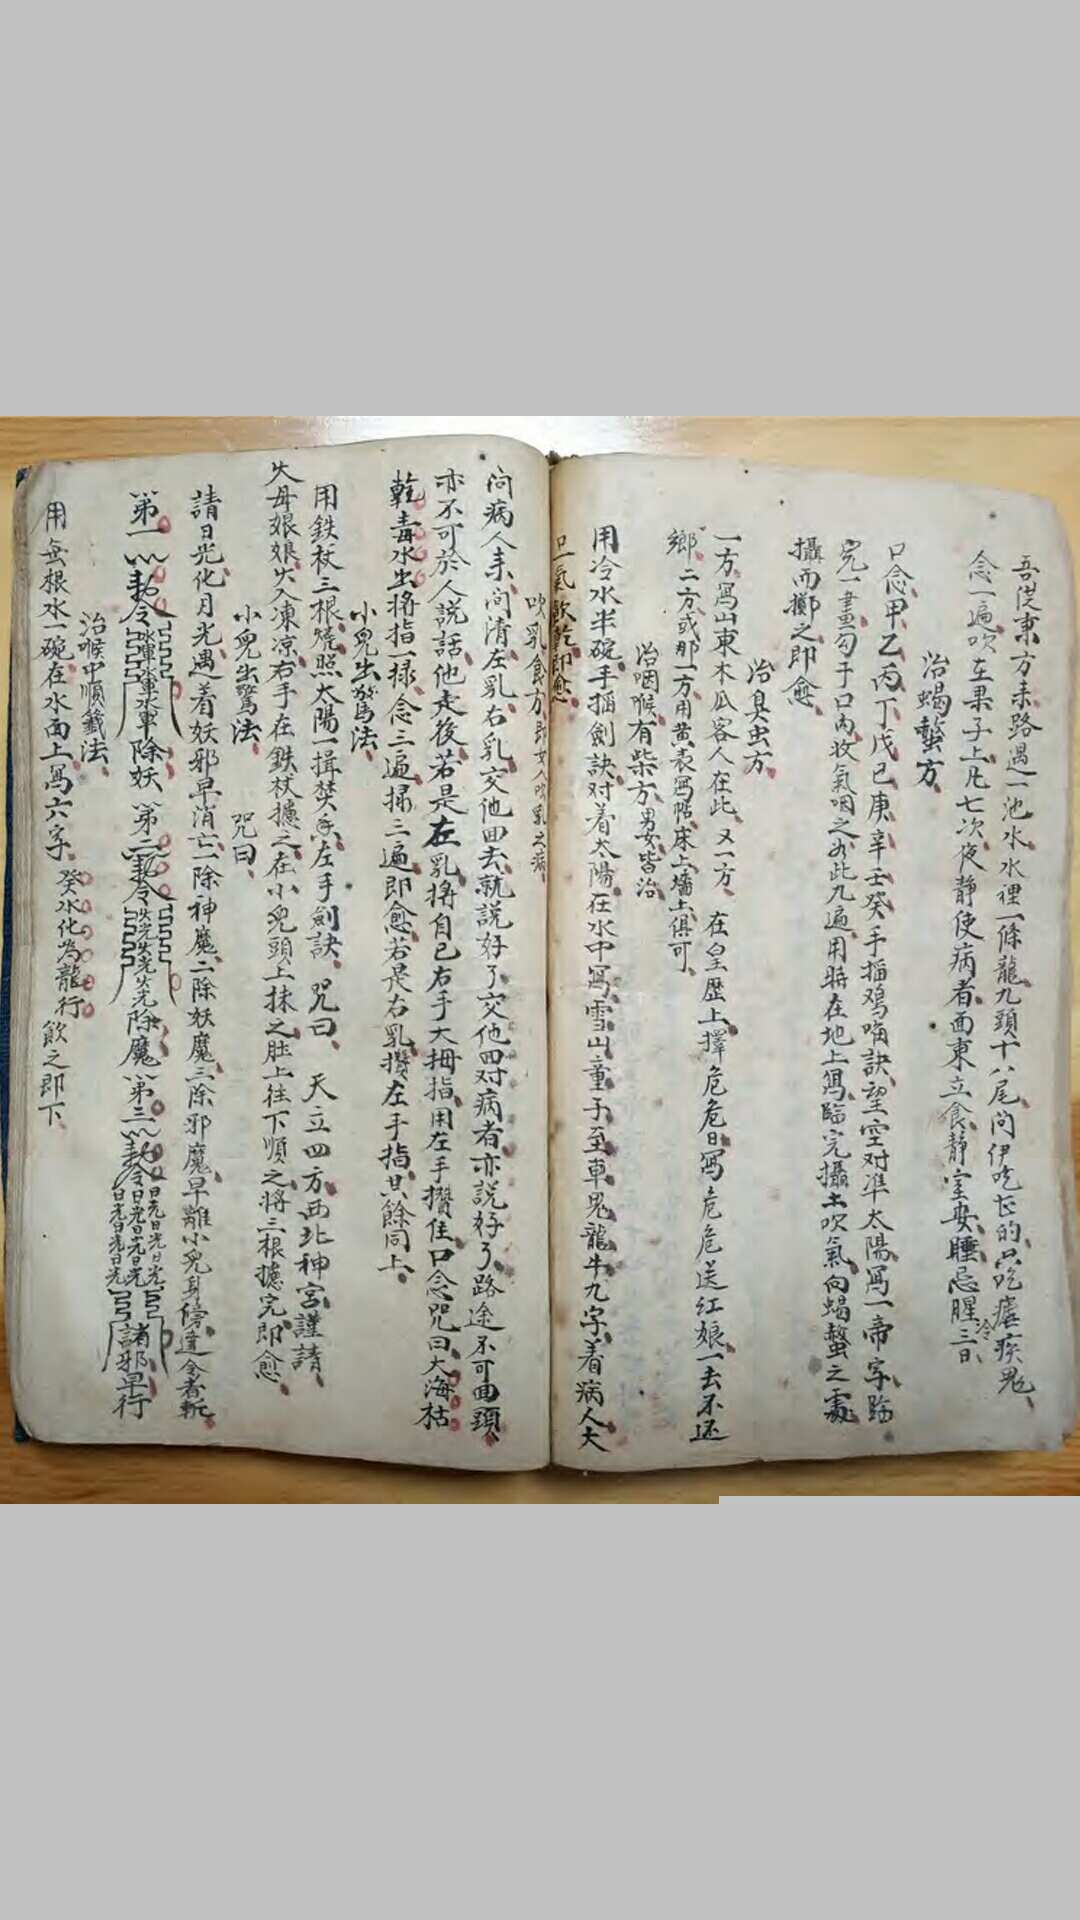 吾從東方来路遇一池水水裡一條龍九頭十八尾问伊吃甚的只吃瘧疾鬼
念一遍吹在果子上凡七次夜静使病者面東立食静室安睡忌腥冷三日
治蝎螫方
口念甲乙丙丁戊己庚辛壬癸手搯鸡嘴訣望空对准太陽寫一帝字
完一畫勾于口內收氣咽之如此九遍用時在地上寫臨完攝土吹氣向蝎螫之處
攝而擲之即愈
治臭虫方
一方寫山東木瓜客人在此又一方在皇歷上擇危危日寫危危送紅娘一去不还
鄉二方或那一方用黄表寫帖床上墻上俱可
治咽喉有柴方男女皆治
用冷水半碗手搯劍訣对着太陽在水中寫雪山童子至車鬼龍牛九字着病人大
口一氣飲乾即愈
吹乳食方即女人吹乳之病
问病人来问清左乳右乳交他回去就説好了交他回对病者亦説好了路途不可回頭
亦不可於人説話他走後若是左乳将自己右手大拇指用左手攢住口念咒曰大海枯
乾毒水出将指一捋念三遍捋三遍即愈若是右乳攢左手指其餘同上
小兒出驚法
用鉄杖三根燒照太陽一揖焚香左手劍訣咒曰天立四方西北神宮謹請
火母娘娘火入凍凉右手在鉄杖攄之在小兒頭上抹之肚上往下順之将三根攄完即愈
小兒出驚法咒曰
請日光化月光遇着妖邪早消亡一除神魔二除妖魔三除邪魔早離小兒身傍違令者斬
第一勅令除妖第二勅令除魔第三勅令日光日光日光諸邪早行
治喉中順籤法
用無根水一碗在水面上寫六字癸水化為龍行飲之即下